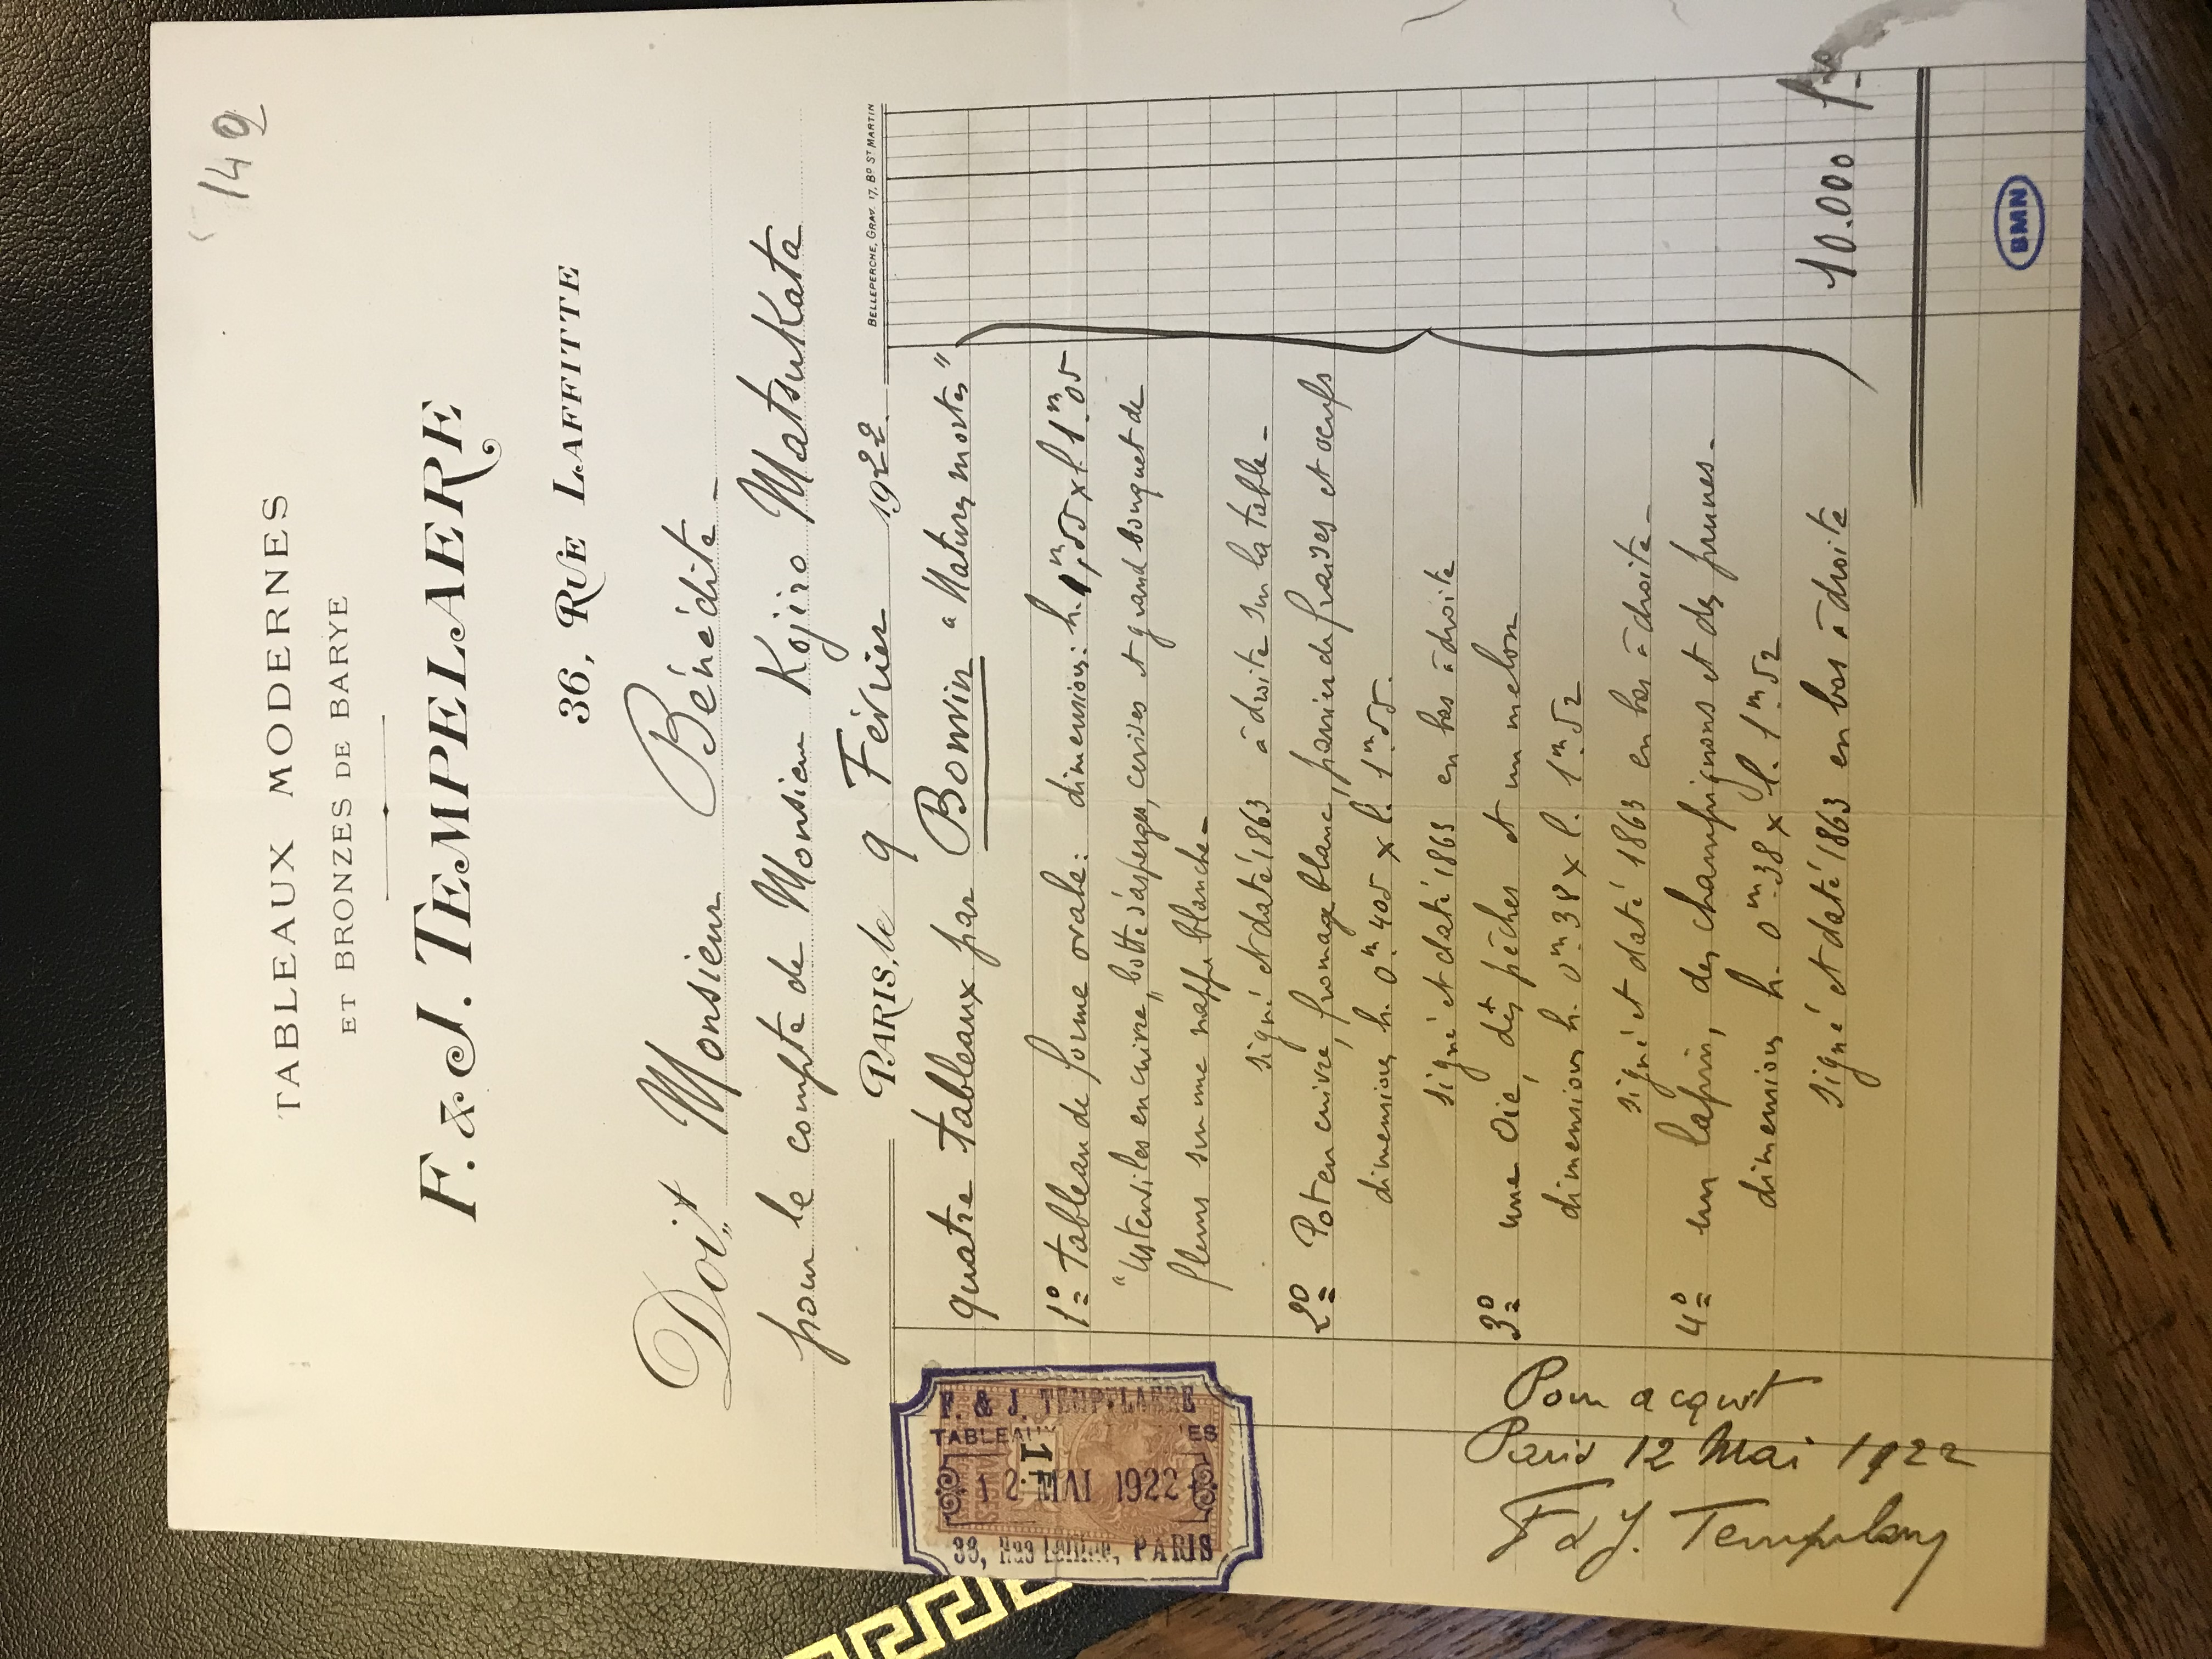 149
TABLEAUX MODERNES
ET BRONZES DE BARYE
F. & J. TEMPELAERE
36, RUE LAFFITTE
Doit Monsieur Bénédite
pour le compte de Monsieur Kojiro Matsukata
PARIS, le 9 Février 1922
BELLEPERCHE, GRAV. 17, Bd ST MARTIN
quatre tableaux par Bonvin "Natures mortes"
1º tableau de forme ovale: dimensions: h. 1m,55 x l 1m.05
"Ustensiles en cuivre, botte d'asperges, cerises et grand bouquet de
fleurs sur une nappe blanche
signé et daté 1863 à droite sur la table
2º Pot en cuivre, fromage blanc, panier de fraises et oeufs
dimensions h. 0m.405 x l. 1m.55.
signé et daté 1863 en bas à droite
3º une oie, des pêches et un melon
dimensions h. 0m.38 x l. 1m.52
signé et daté 1863 en bas à droite
4º un lapin, des champignons et des prunes
dimensions h. 0m.38 x l. 1m.52
signé et daté 1863 en bas à droite
10.000 frs
F. & J. TEMPELAERE
TABLEAUX
1F
12 MAI 1922
36, Rue Laffitte, PARIS
Pour acquit
Paris 12 Mai 1922
F & J. Tempelaere
BMN